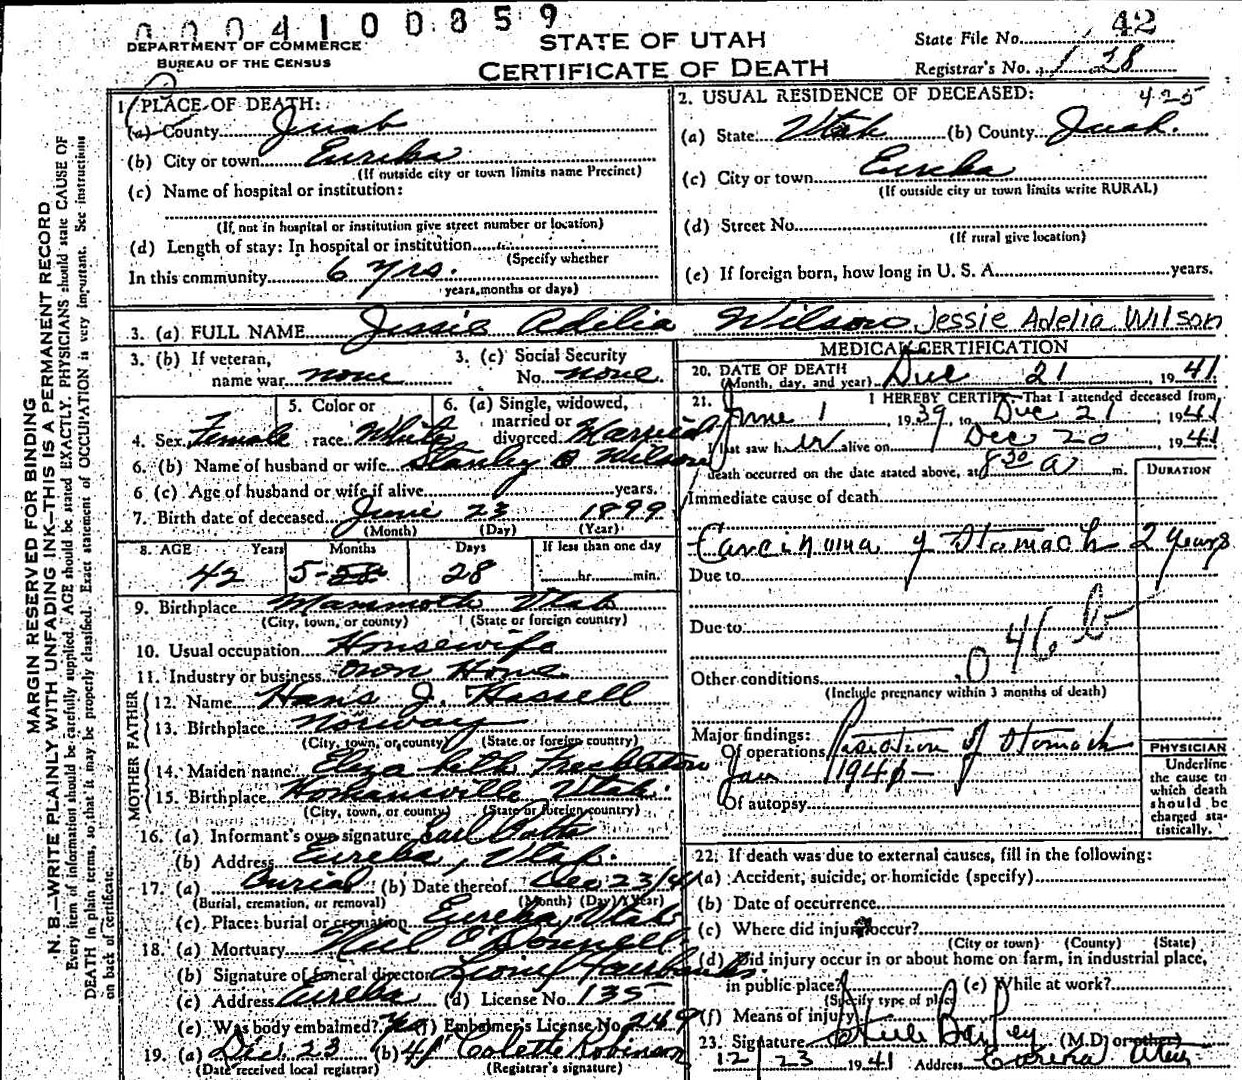 0004100859
DEPARTMENT OF COMMERCE
BUREAU OF THE CENSUS
STATE OF UTAH
CERTIFICATE OF DEATH
State File No. 42
Registrar's No. 128
MARGIN RESERVED FOR BINDING
N. B.—WRITE PLAINLY WITH UNFADING INK—THIS IS A PERMANENT RECORD
Every item of information should be carefully supplied. AGE should be stated EXACTLY. PHYSICIANS should state CAUSE OF
DEATH in plain terms, so that it may be properly classified. Exact statement of OCCUPATION is very important. See instructions
on back of certificate.
1. PLACE OF DEATH:
(a) County Juab
(b) City or town Eureka
(If outside city or town limits name Precinct)
(c) Name of hospital or institution:
(If not in hospital or institution give street number or location)
(d) Length of stay: In hospital or institution
(Specify whether
In this community 6 yrs.
years, months or days)
2. USUAL RESIDENCE OF DECEASED: 425
(a) State Utah (b) County Juab.
(c) City or town Eureka
(If outside city or town limits write RURAL)
(d) Street No.
(If rural give location)
(e) If foreign born, how long in U. S. A. years.
3. (a) FULL NAME Jessie Adelia Wilson Jessie Adelia Wilson
3. (b) If veteran,
name war none
3. (c) Social Security
No. none
4. Sex Female
5. Color or
race White
6. (a) Single, widowed,
married or
divorced Married
6. (b) Name of husband or wife Stanley B Wilson
6 (c) Age of husband or wife if alive years.
7. Birth date of deceased June 23 1899
(Month) (Day) (Year)
8. AGE Years Months Days If less than one day
42 5 28 28 hr. min.
9. Birthplace Mammoth Utah
(City, town, or county) (State or foreign country)
10. Usual occupation Housewife
11. Industry or business own Home
FATHER
12. Name Hans J. Hassell
13. Birthplace Norway
(City, town, or county) (State or foreign country)
MOTHER
14. Maiden name Eliza
15. Birthplace Homansville Utah.
(City, town, or county) (State or foreign country)
16. (a) Informant's own signature Earl
(b) Address Eureka, Utah.
17. (a) Burial (b) Date thereof Dec 23/41
(Burial, cremation, or removal) (Month) (Day) (Year)
(c) Place: burial or cremation Eureka, Utah
18. (a) Mortuary Neil O'Donnell
(b) Signature of funeral director
(c) Address Eureka (d) License No. 135
(e) Was body embalmed? Yes (f) Embalmer's License No. 249
19. (a) Dec. 23 (b) 41 Colette Robinson
(Date received local registrar) (Registrar's signature)
MEDICAL CERTIFICATION
20. DATE OF DEATH
(Month, day, and year) Dec 21, 1941
21. I HEREBY CERTIFY—That I attended deceased from
June 1, 1939, to Dec 21, 1941
I last saw her alive on Dec 20 1941
death occurred on the date stated above, at 8 30 a m.
DURATION
Immediate cause of death
Carcinoma of Stomach 2 years
Due to
Due to
046b
Other conditions
(Include pregnancy within 3 months of death)
Major findings:
Of operations of Stomach
Jan 1940
Of autopsy
PHYSICIAN
Underline
the cause to
which death
should be
charged sta-
tistically.
22. If death was due to external causes, fill in the following:
(a) Accident, suicide, or homicide (specify)
(b) Date of occurrence
(c) Where did injury occur?
(City or town) (County) (State)
(d) Did injury occur in or about home on farm, in industrial place,
in public place? (e) While at work?
(Specify type of place)
(f) Means of injury
23. Signature Steele Bailey (M.D. or other)
12/23 1941 Address Eureka Utah